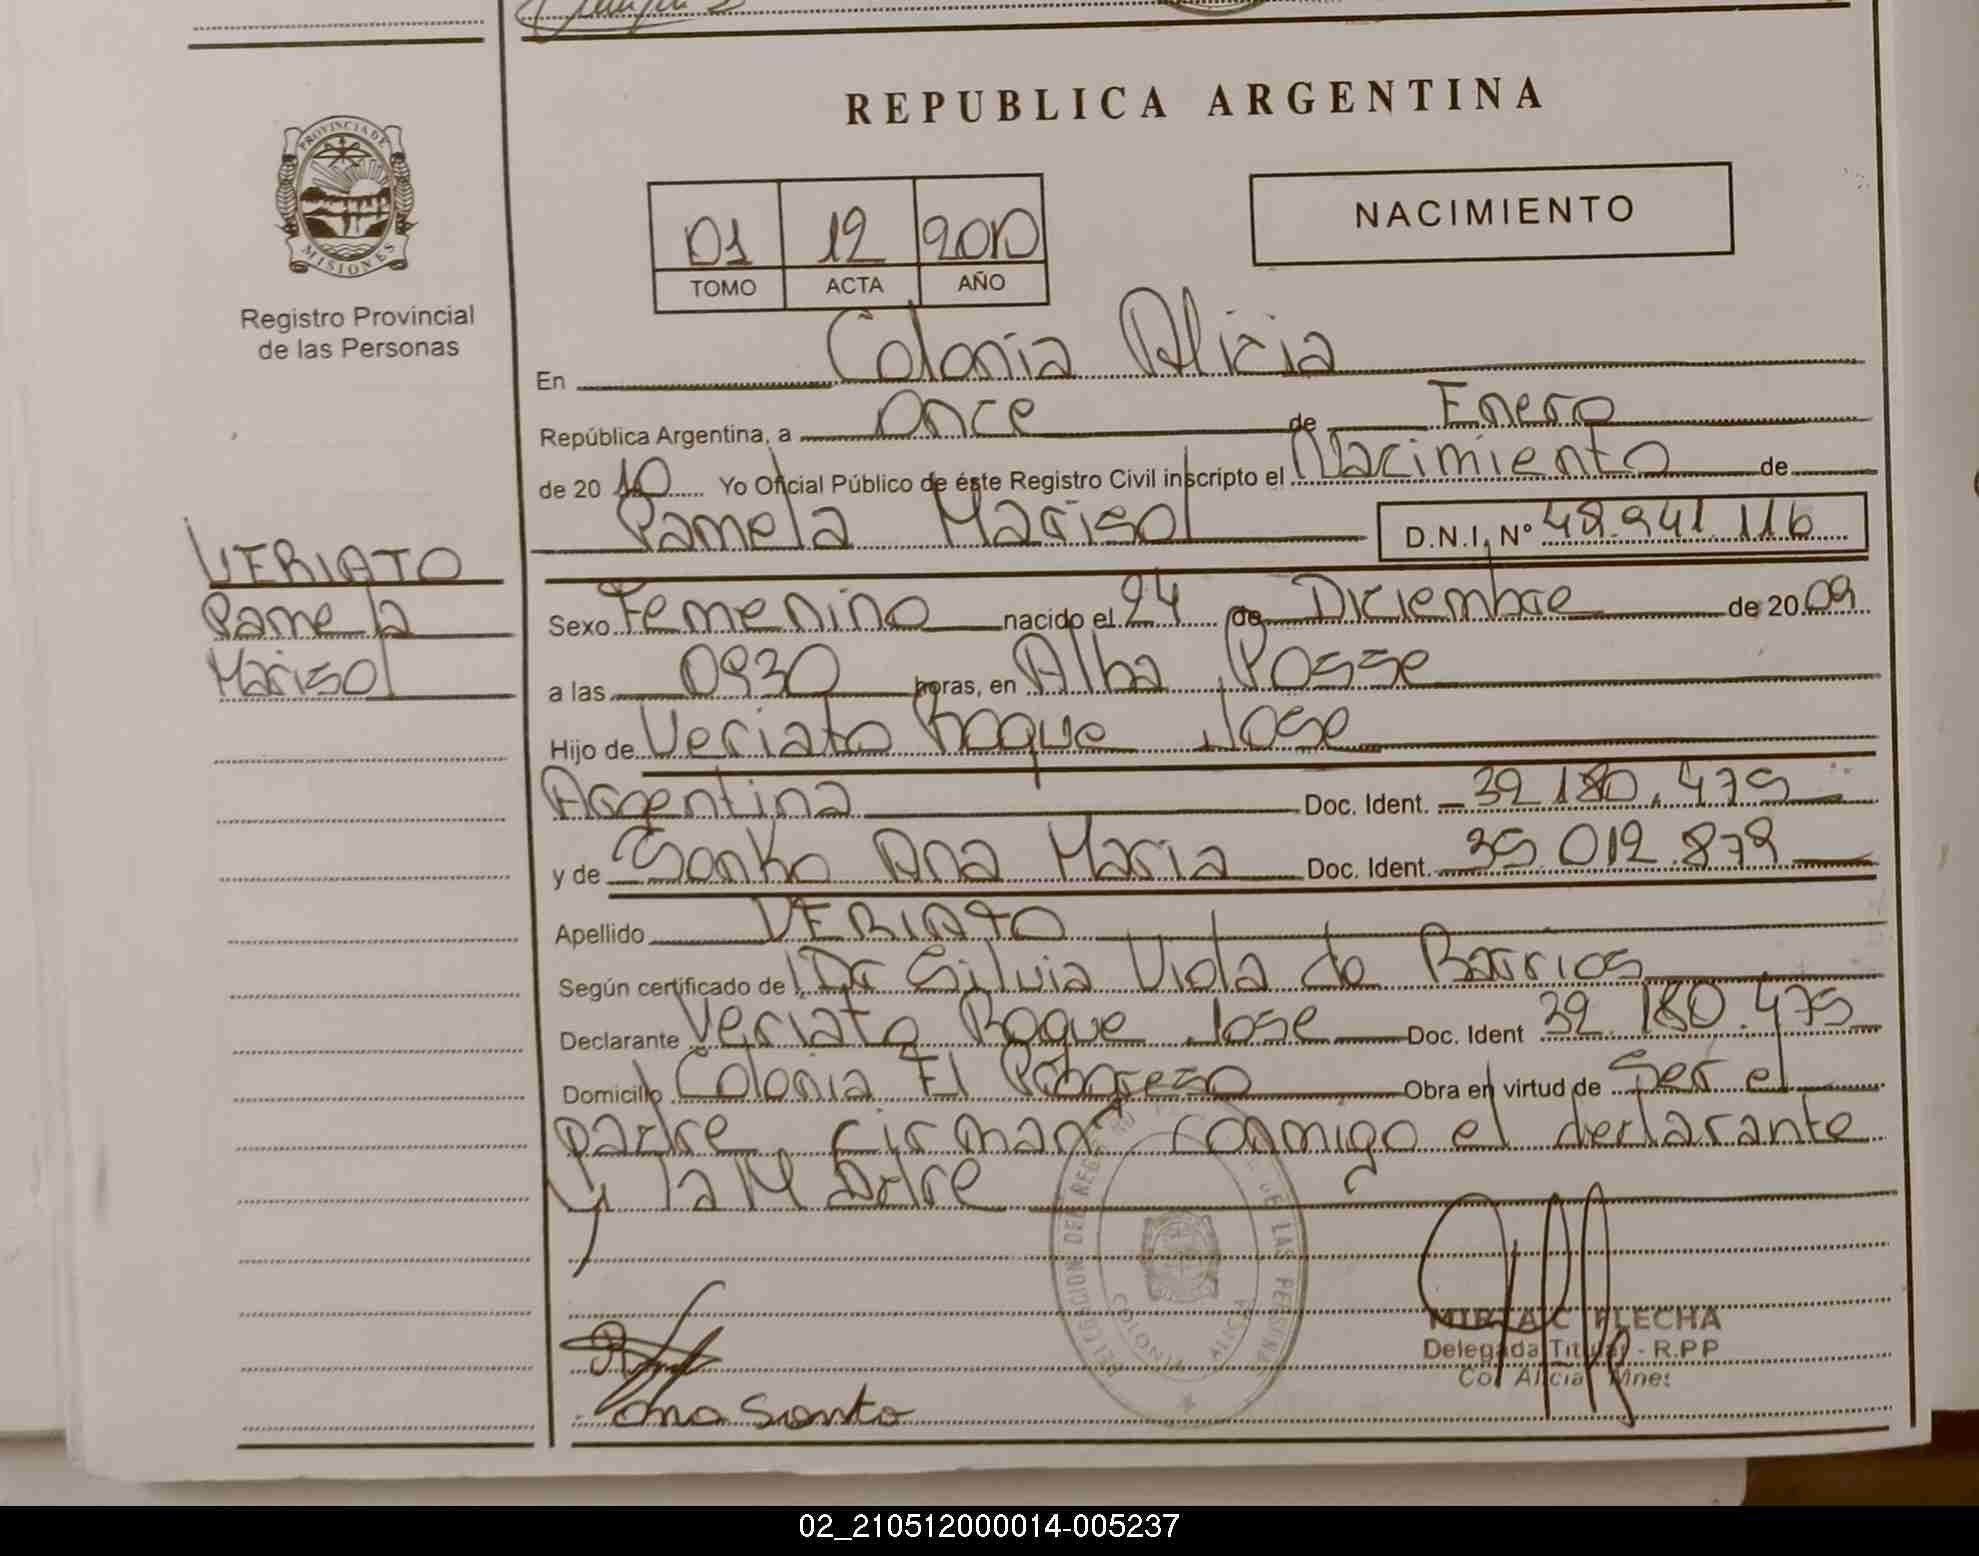 REPUBLICA ARGENTINA
PROVINCIA DE MISIONES
Registro Provincial
de las Personas
01 12 2010
TOMO ACTA AÑO
NACIMIENTO
En Colonia Alicia
República Argentina, a Once de Enero
de 20 10 Yo Oficial Público de éste Registro Civil inscripto el Nacimiento de
Pamela Marisol D.N.I. Nº 49.941.116
VERIATO
Pamela
Marisol
Sexo Femenino nacido el 24 de Diciembre de 20 09
a las 0930 horas, en Alba Posse
Hijo de Veriato Roque Jose
Argentina Doc. Ident. 39 180.475
y de Sonko Ana Maria Doc. Ident. 35 012.879
Apellido VERIATO
Según certificado de Dr Silvia Viola de Barrios
Declarante Veriato Roque Jose Doc. Ident 39.180.475
Domicilio Colonia El Progreso Obra en virtud de Ser el
padre firman conmigo el declarante
y la Madre
DELEGACION DEL REGISTRO DE LAS PERSONAS
COLONIA ALICIA
MIRTA C FLECHA
Delegada Titular - R.P.P
Col Alicia Mnes
Ana
02_210512000014-005237